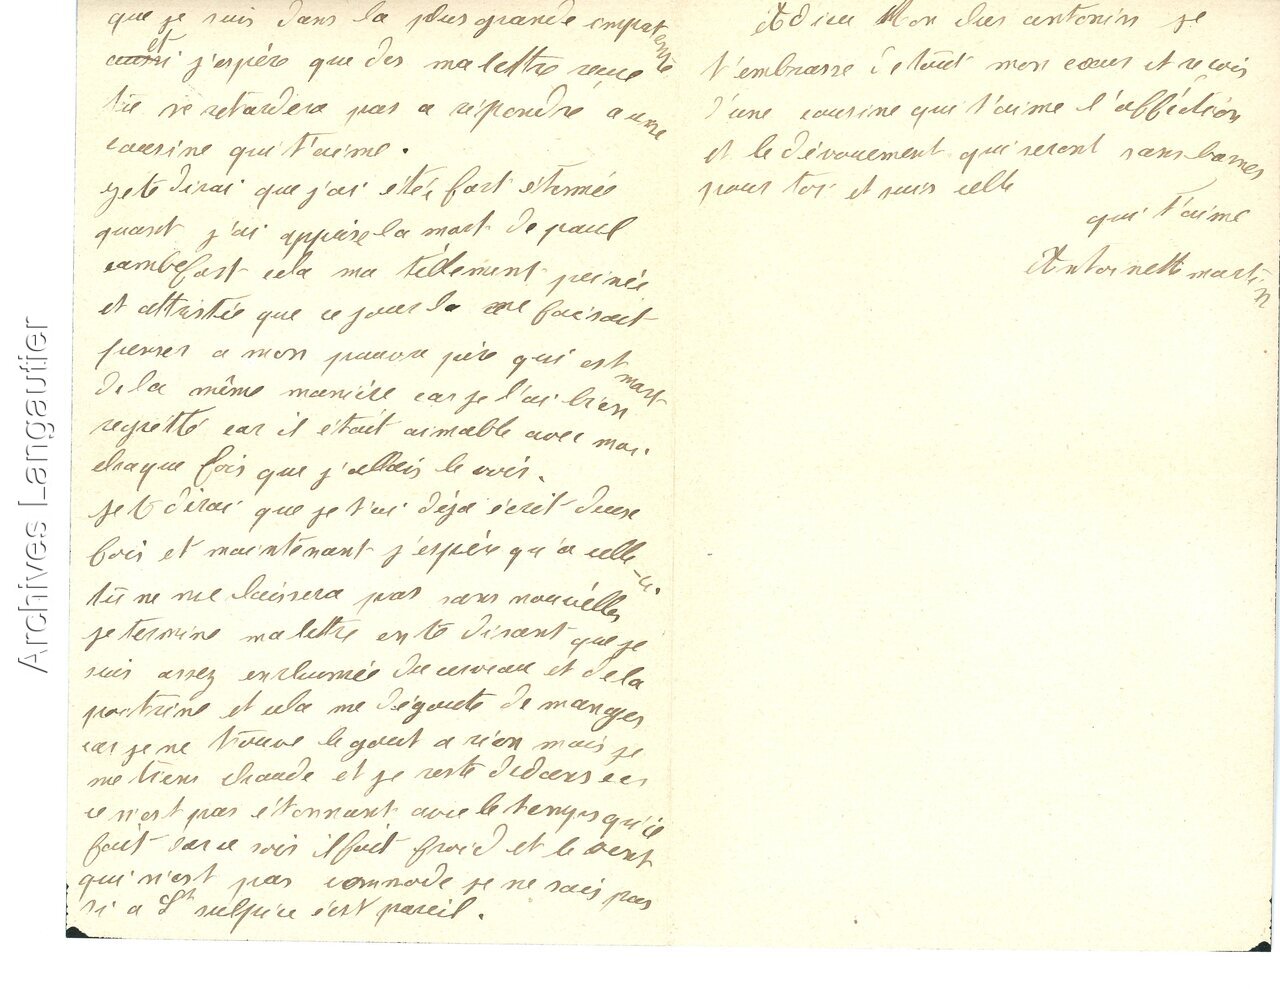 que je suis dans la plus grande impatience
aussi et j'espére que des ma lettre recue
tu ne retardera pas a répondré a une
cousine qui t'aime.
je te dirai que j'ai étée fort étonnée
quant j'ai apprise la mort de paul
cambefort cela ma tellement peinée
et attristée que ce jour la me faisait
penser a mon pauvre pére qui est mort
de la même maniére car je l'ai bien
regretté car il était aimable avec moi.
chaque fois que j'allais le voir.
je te dirai que je t'ai déja écrit deux
fois et maintenant j'espére qu'a celle-ci
tu ne me laissera pas sans nouvélles
je termine ma lettre en te disant que je
suis assez enrhumée du cerveau et de la
poitrine et cela me dégoute de manger
car je ne trouve le gout a rien mais je
me tiens chaude et je reste dedans car
ce n'est pas étonnant avec le temps qu'il
fait car ce soir il fait froid et le vent
qui n'est pas commode je ne sais pas
si a St sulpice c'est pareil.
Adieu Mon cher antonin je
t'embrasse de tout mon cœur et recois
d'une cousine qui t'aime l'affection
et le dévouement qui seront sans bornes
pour toi et suis celle
qui t'aime
Antoinette martin
Archives Langautier